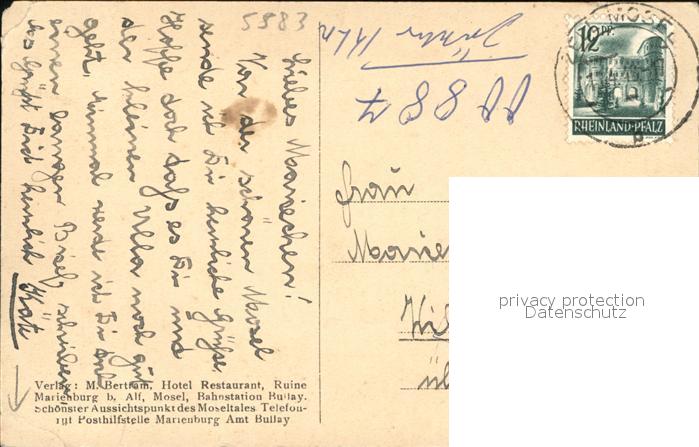 5983
Liebes Mariechen!
Von der schönen Mosel
sende ich Dir herzliche Grüße.
Hoffe doch daß es Dir und
der kleinen Ulla noch gut
geht. Einmal werde ich Dir auch
einen langen Brief schreiben.
Es grüßt Dich herzlich Käte
Verlag: M. Bertram, Hotel Restaurant, Ruine
Marienburg b. Alf, Mosel, Bahnstation Bullay.
Schönster Aussichtspunkt des Moseltales Telefon-
Posthilfstelle Marienburg Amt Bullay
12 PF.
MOSEL
RHEINLAND-PFALZ
b
Frau
privacy protection
Datenschutz